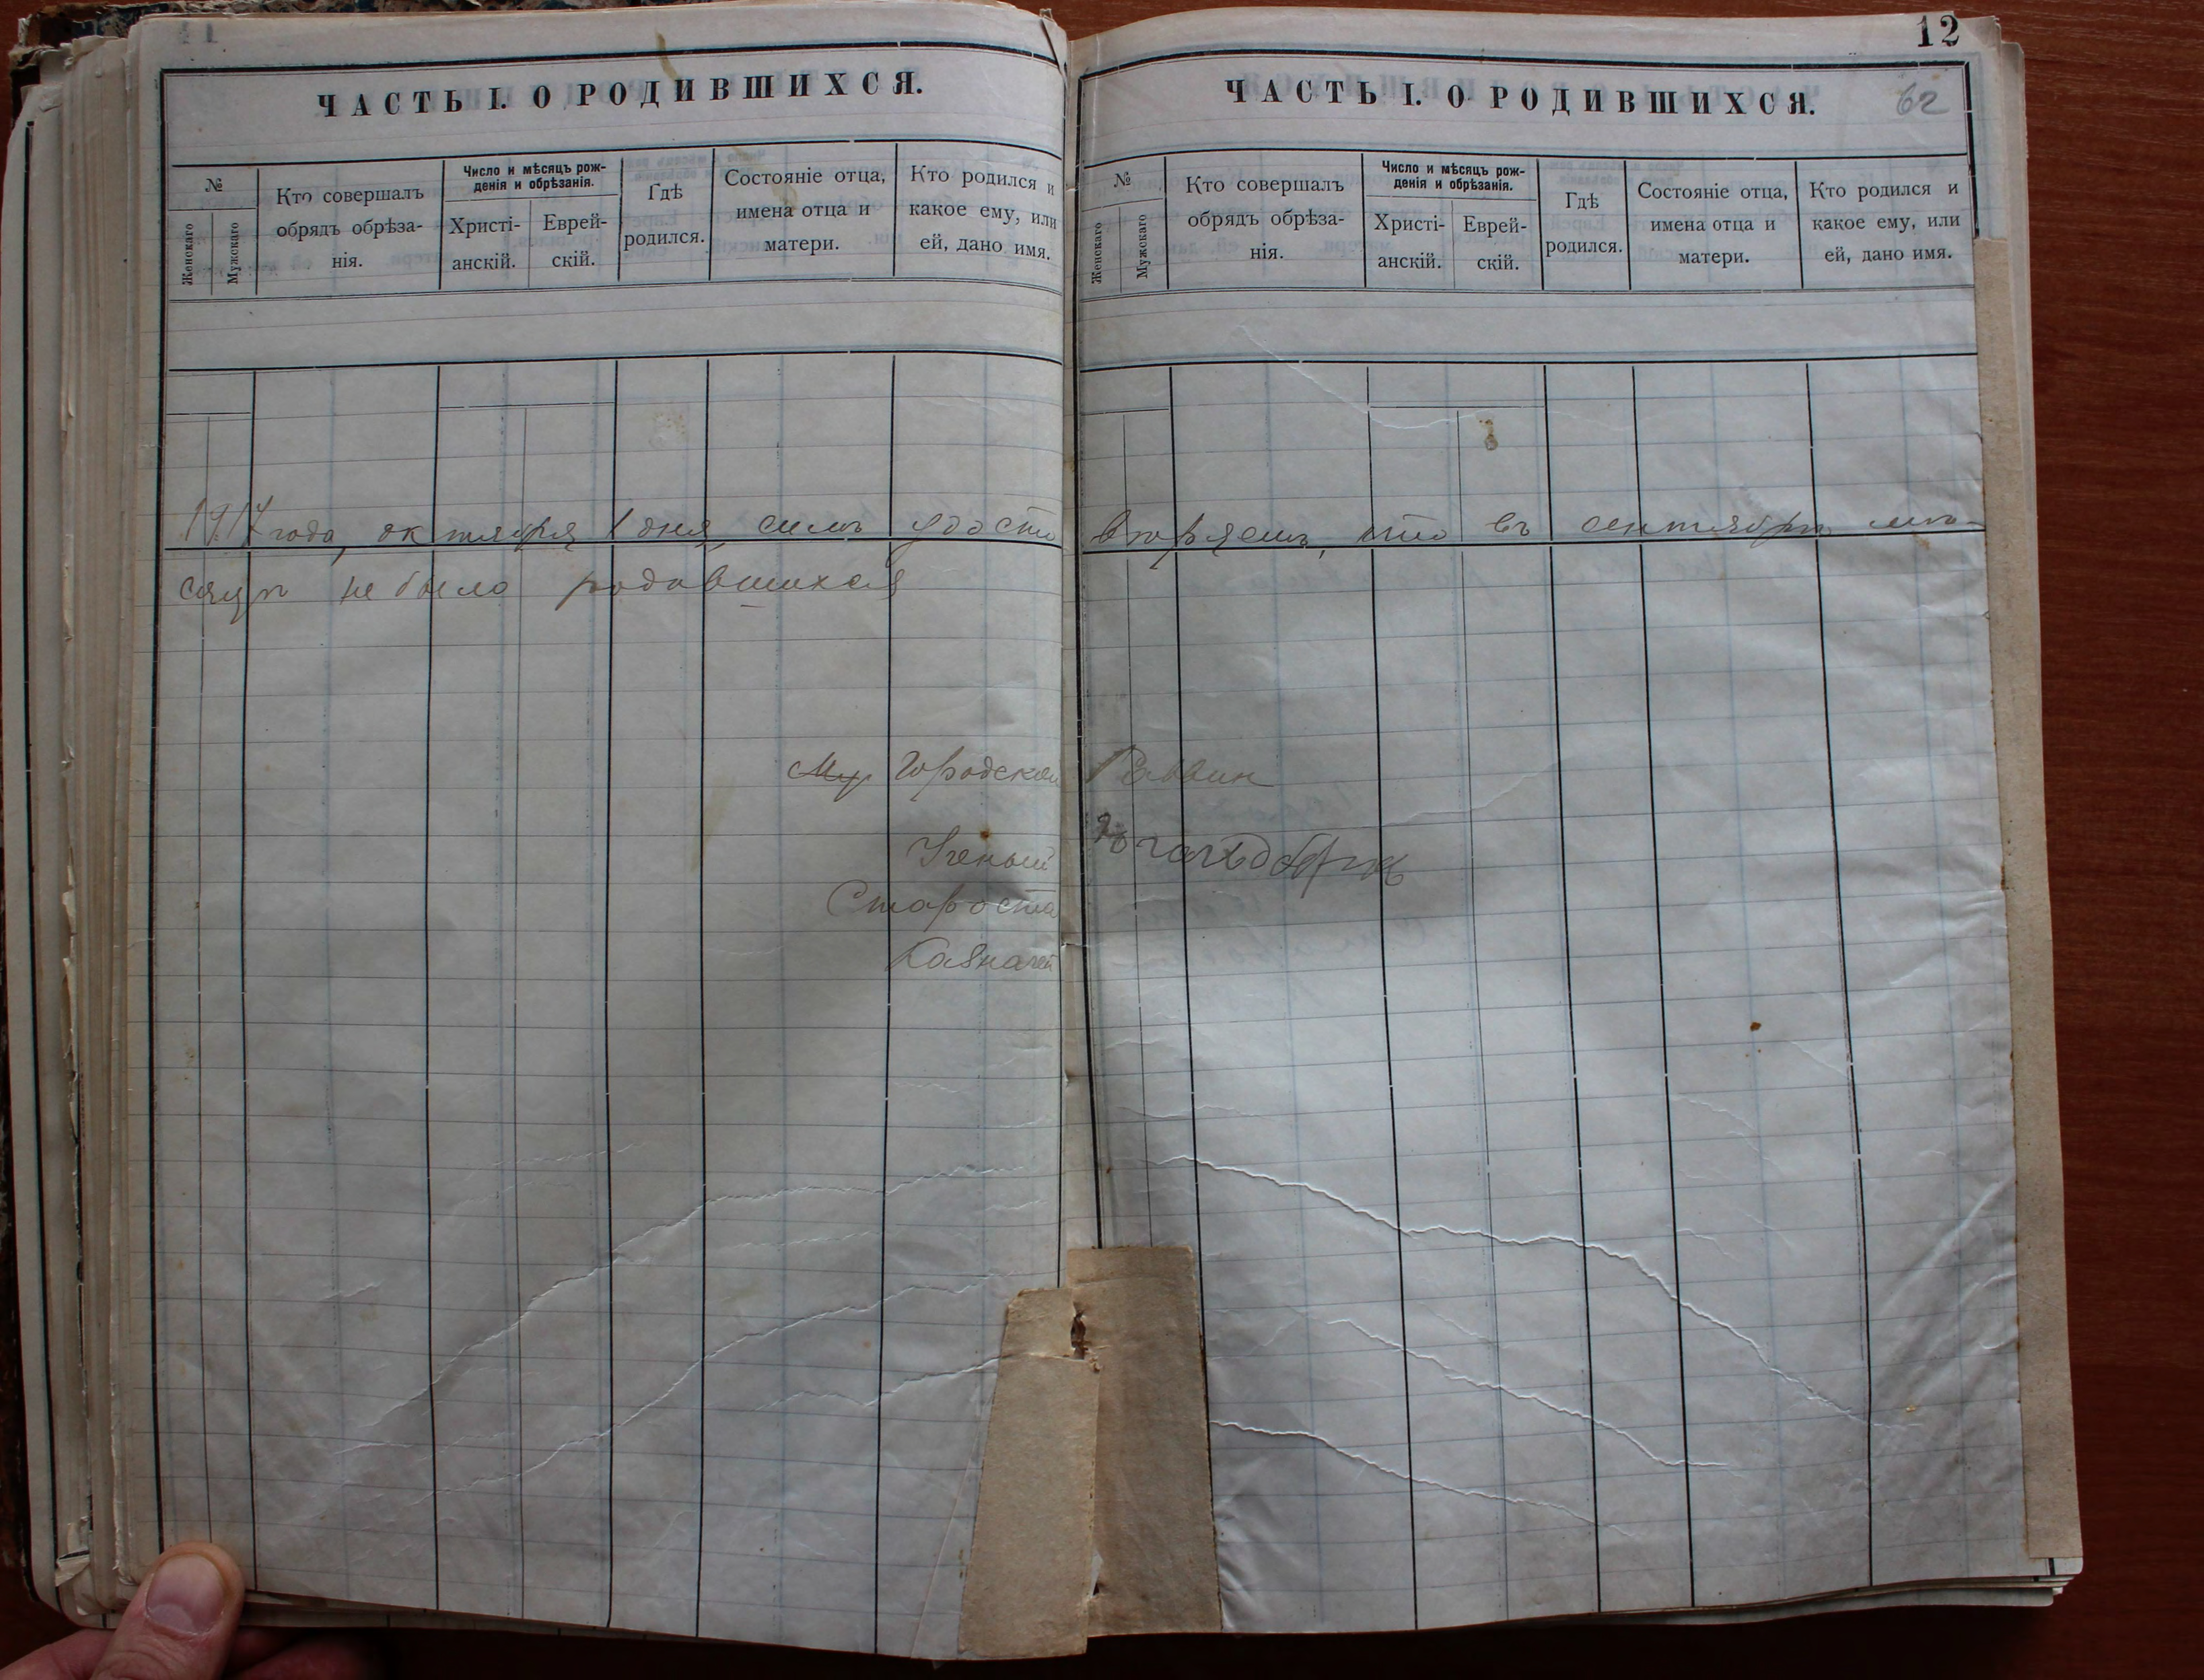 12
62
ЧАСТЬ I. О РОДИВШИХСЯ.
№
Женскаго
Мужскаго
Кто совершалъ
обрядъ обрѣза-
нія.
Число и мѣсяцъ рож-
денія и обрѣзанія.
Христі-
анскій.
Еврей-
скій.
Гдѣ
родился.
Состояніе отца,
имена отца и
матери.
Кто родился и
какое ему, или
ей, дано имя.
ЧАСТЬ I. О РОДИВШИХСЯ.
№
Женскаго
Мужскаго
Кто совершалъ
обрядъ обрѣза-
нія.
Число и мѣсяцъ рож-
денія и обрѣзанія.
Христі-
анскій.
Еврей-
скій.
Гдѣ
родился.
Состояніе отца,
имена отца и
матери.
Кто родился и
какое ему, или
ей, дано имя.
1917 года, октября 1 дня, симъ удосто вѣряемъ, что въ сентябрѣ мѣ-
сяцѣ не было родившихся
Городской Раввин
Ученый
Староста
Казначей